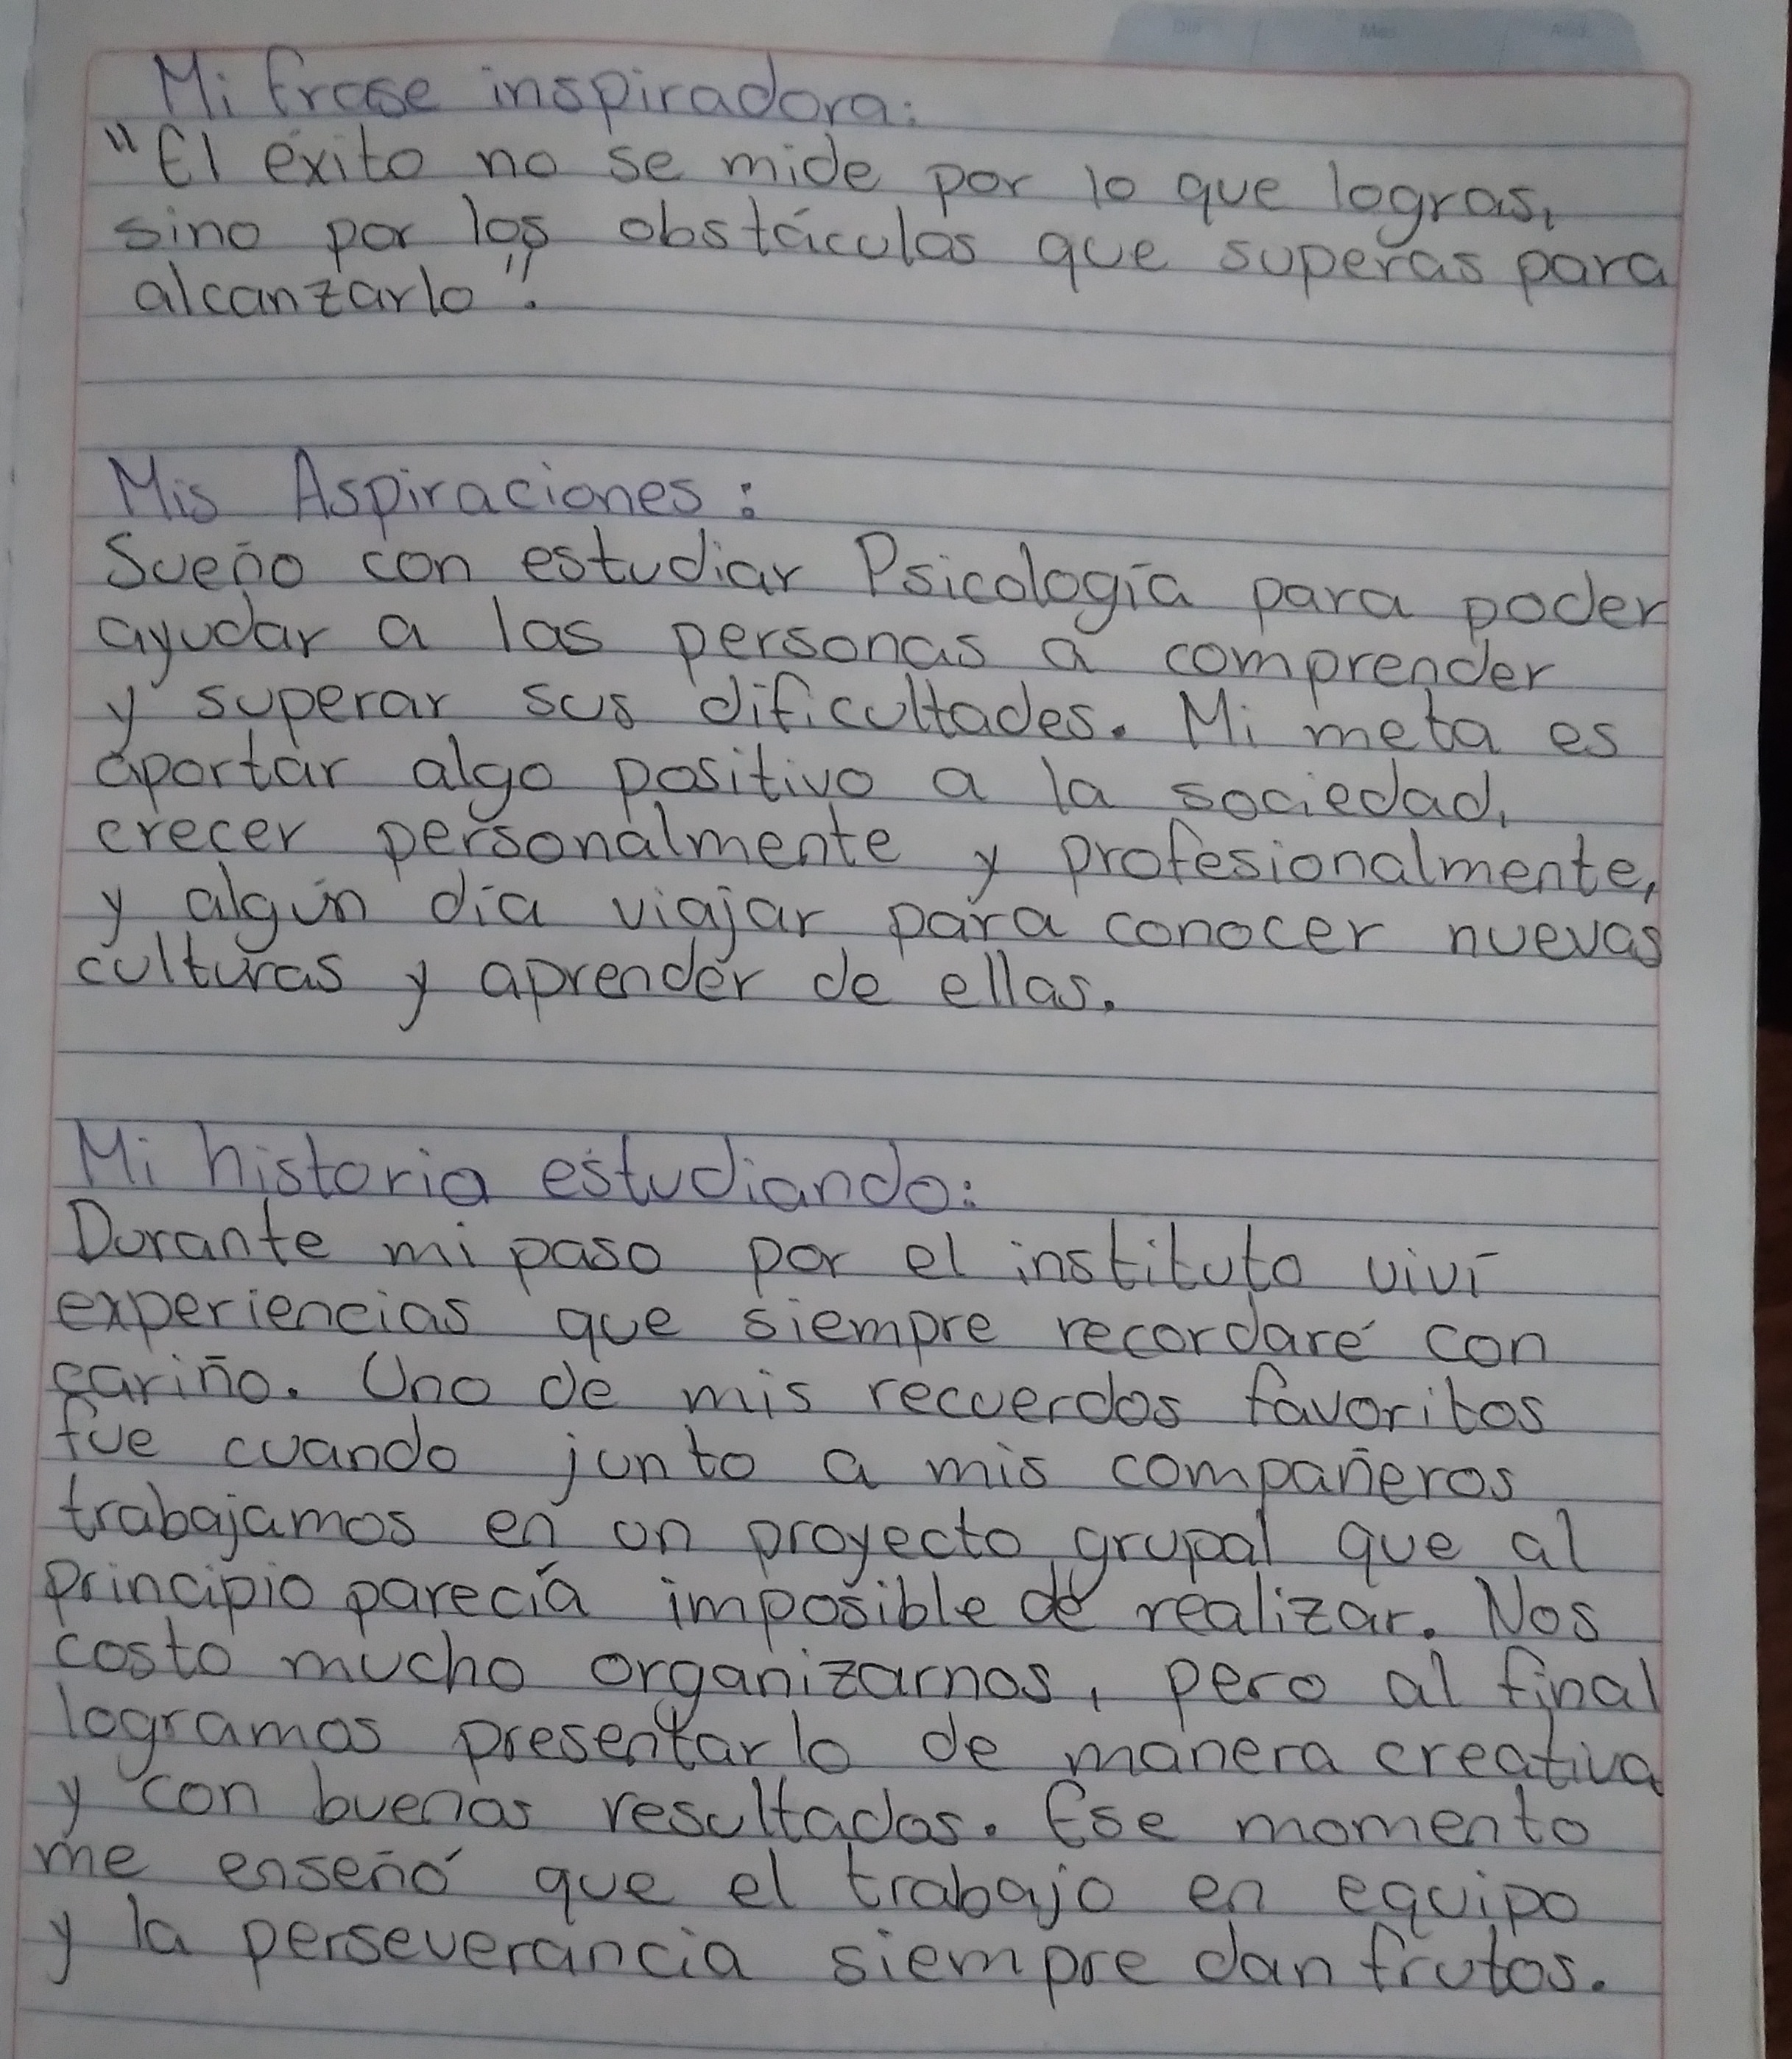 Mi frase inspiradora:
"El éxito no se mide por lo que logras,
sino por los obstáculos que superas para
alcanzarlo".
Mis Aspiraciones:
Sueño con estudiar Psicología para poder
ayudar a las personas a comprender
y superar sus dificultades. Mi meta es
aportar algo positivo a la sociedad,
crecer personalmente y profesionalmente,
y algún día viajar para conocer nuevas
culturas y aprender de ellas.
Mi historia estudiando:
Durante mi paso por el instituto viví
experiencias que siempre recordaré con
cariño. Uno de mis recuerdos favoritos
fue cuando junto a mis compañeros
trabajamos en un proyecto grupal que al
principio parecía imposible de realizar. Nos
costo mucho organizarnos, pero al final
logramos presentarlo de manera creativa
y con buenos resultados. Ese momento
me enseñó que el trabajo en equipo
y la perseverancia siempre dan frutos.